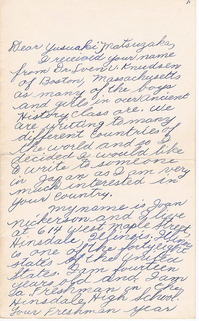 Dear Yusuaki Matsuzaka,
I received your name
from Dr. Iven V. Knudsen
of Boston, Massachusetts
as many of the boys
and girls in our ancient
History class are. We
are writing to many
different countries of
the world and so I
decided I would like
to write to someone
in Japan as I am very
much interested in
your country.
My name is Joan
Nickerson and I live
at 614 West Maple Street,
Hinsdale, Illinois. Illinois
is one of the forty eight
states of the United
States. I am fourteen
years old and I am
a Freshman in the
Hinsdale High School.
Our Freshman year